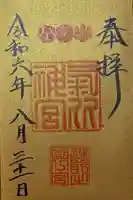 奉拝
氣比
神宮
令和六年八月三十一日